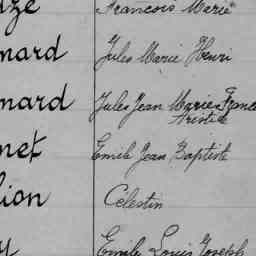 ze François Marie
nard Jules Marie Henri
nard Jules Jean Marie France
Aristide
net Emile Jean Baptiste
lion Célestin
y Emile Louis Joseph